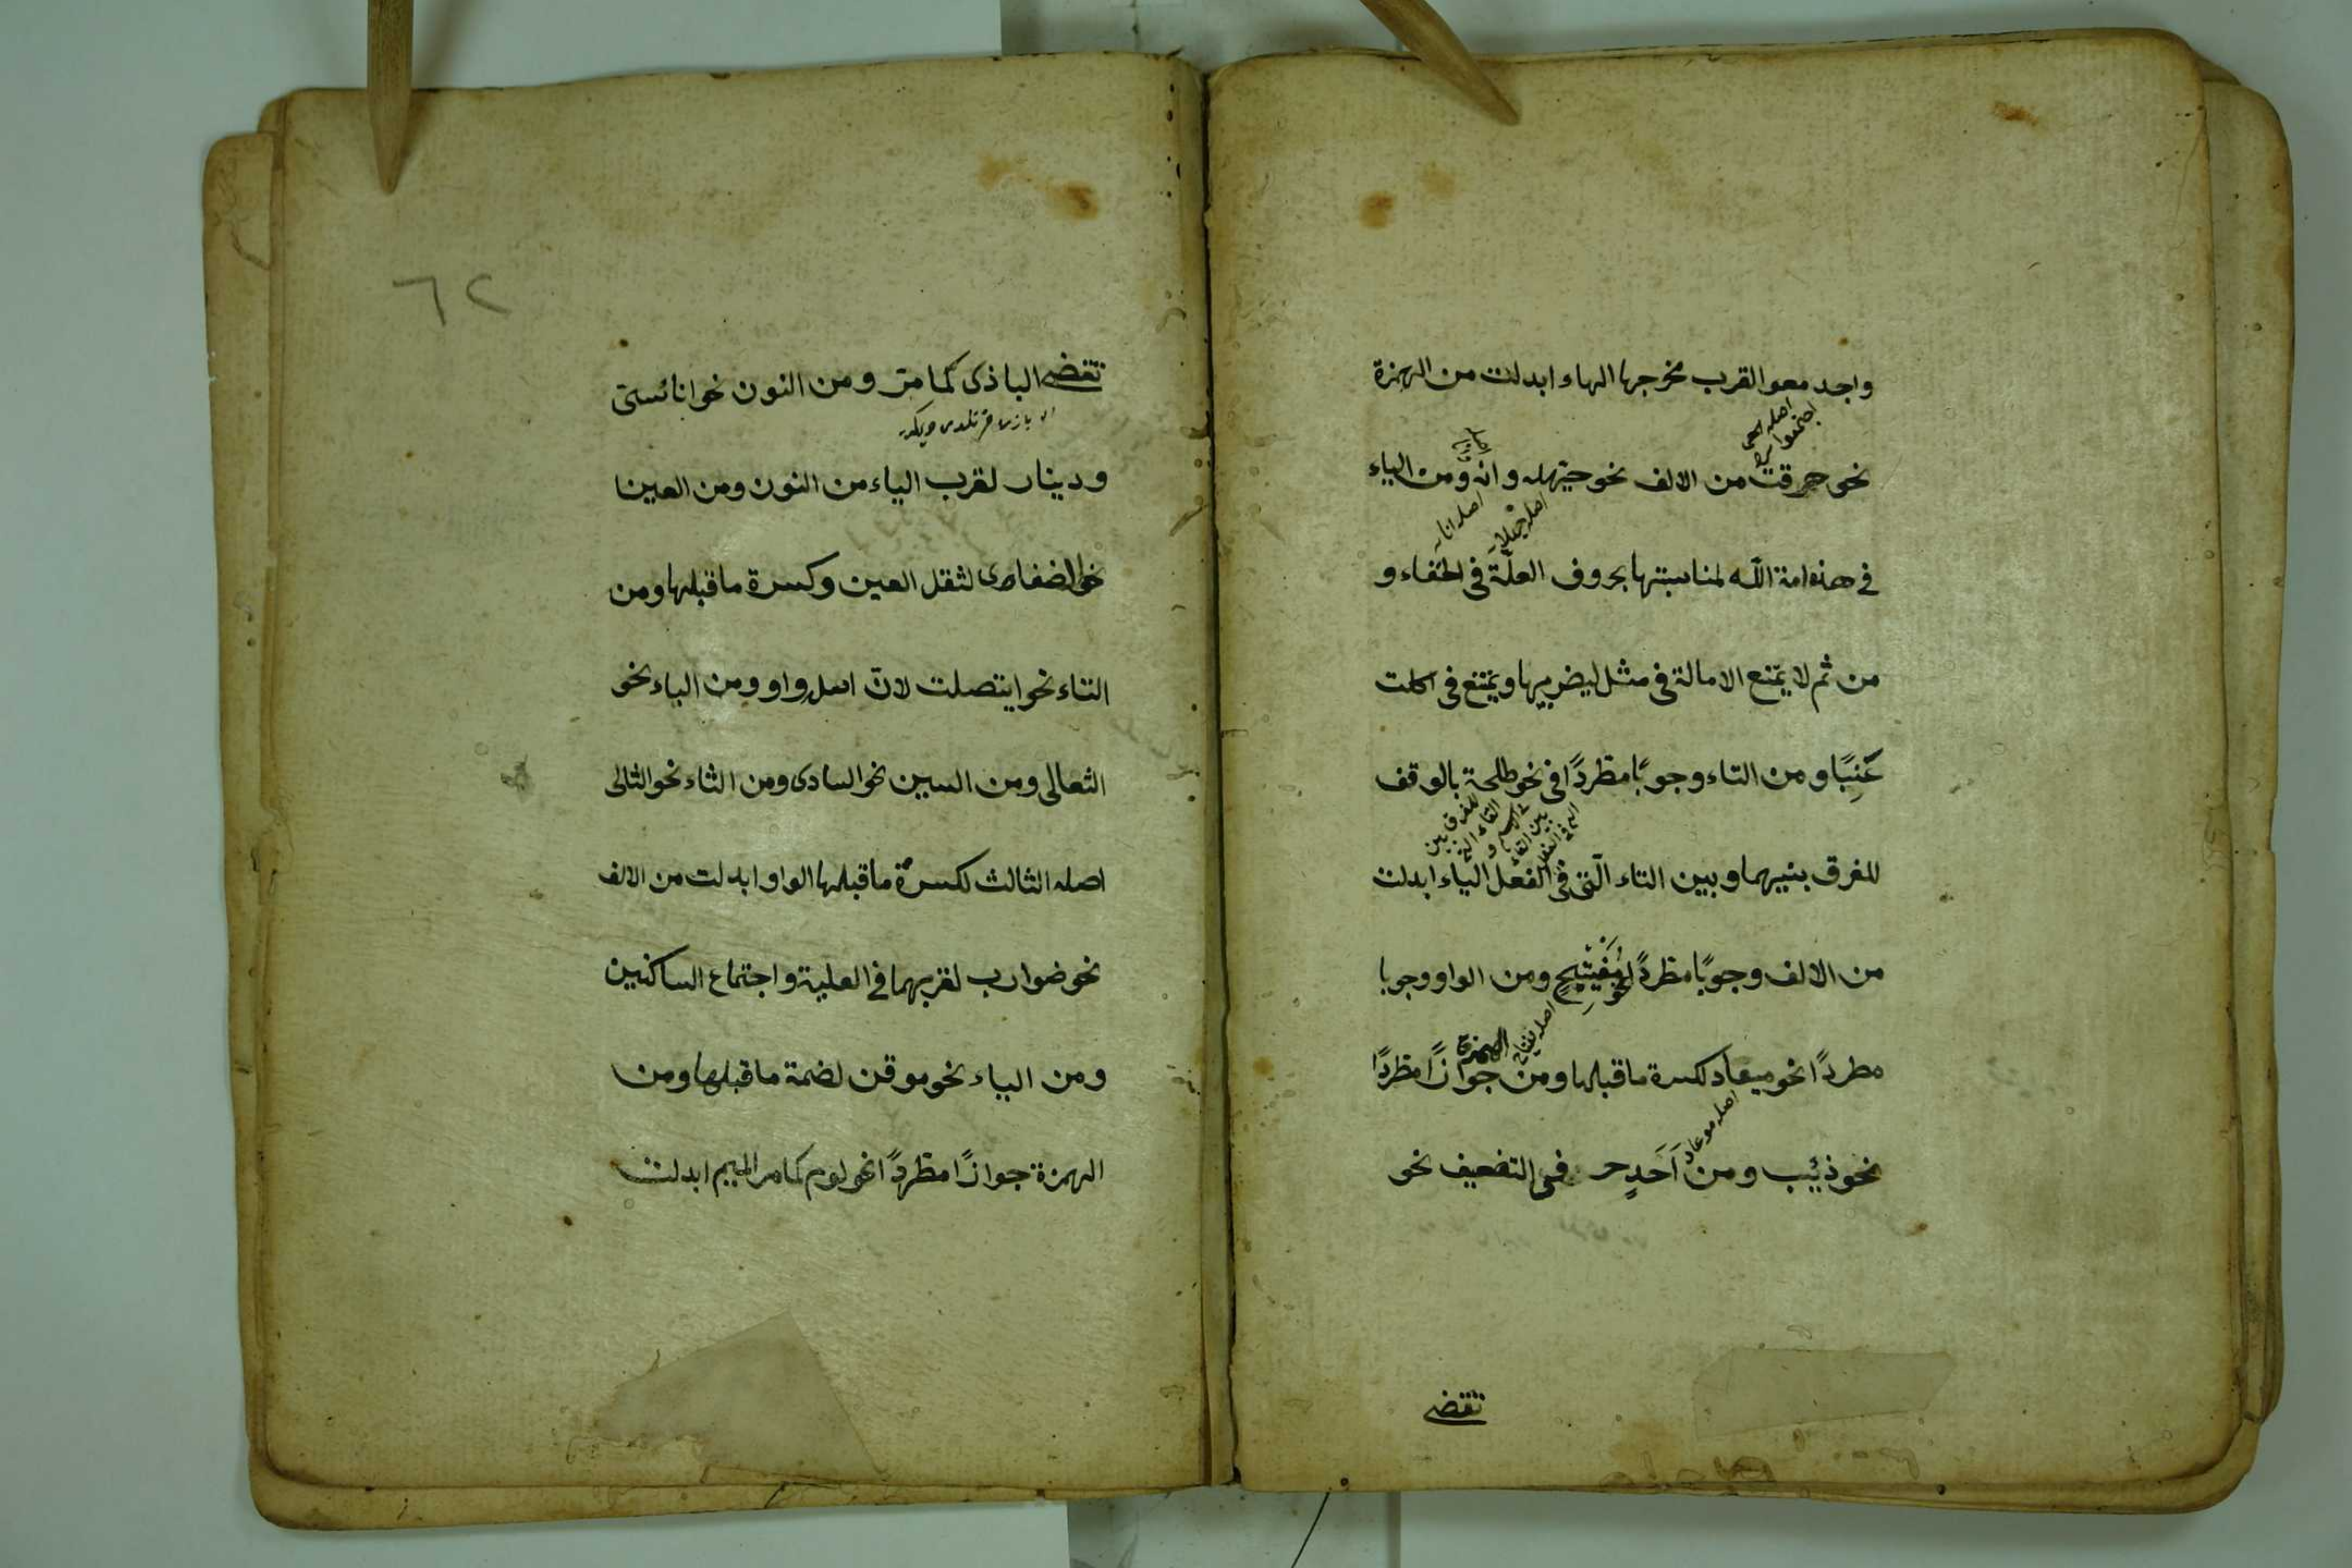 واجد معو القرب مخرجها الهاء ابدلت من الهمزة
اصله
نحو هرقت من الالف نحو حيهله وانه ومن الياء
اصله انا
اصله حيهلا
في هذه امة الله لمناسبتها بحروف العلّة فى الخفاء و
من ثم لا يمتنع الامالة فى مثل ليضربها ويمتنع فى اكلت
عَنِبًا ومن التاء وجوبًا مطردًا فى نحو طلحة بالوقف
للفرق بين
للفرق بينهما وبين التاء الّتى فى الفعل الياء ابدلت
من الالف وجوبًا مطردً نحو مُفَيْتِيحٍ ومن الواو وجوبا
اصله مفتاح
الهمزة
مطردًا نحو ميعاد لكسرة ما قبلها ومن جوازًا مطردًا
اصله موعاد
نحو ذئيب ومن اَحَدِ حر فى التضعيف نحو
تقضى
٦٢
تقضى الباذى كما مرّ ومن النون نحو اناسىّ
ودينار لقرب الياء من النون ومن العين
نحو الضفادى لثقل العين وكسرة ما قبلها ومن
التاء نحو ايتصلت لانّ اصله واو ومن الباء نحو
الثعالى ومن السين نحو السادى ومن الثاء نحو الثالى
اصله الثالث لكسرة ما قبلها الواو ابدلت من الالف
نحو ضوارب لقربهما فى العلية واجتماع الساكنين
ومن الياء نحو موقن لضمة ما قبلها ومن
الهمزة جوازًا مطردًا نحو لوم كما مر الميم ابدلت